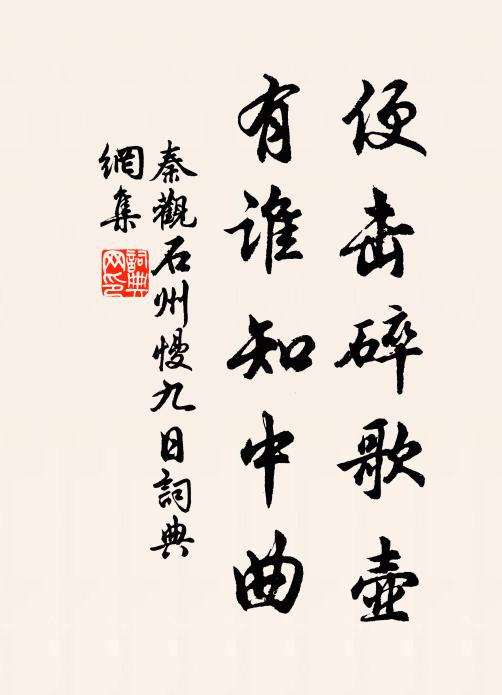 便击碎歌壶
有谁知中曲
秦觀石州慢九日詞典
網集
詞典
网印